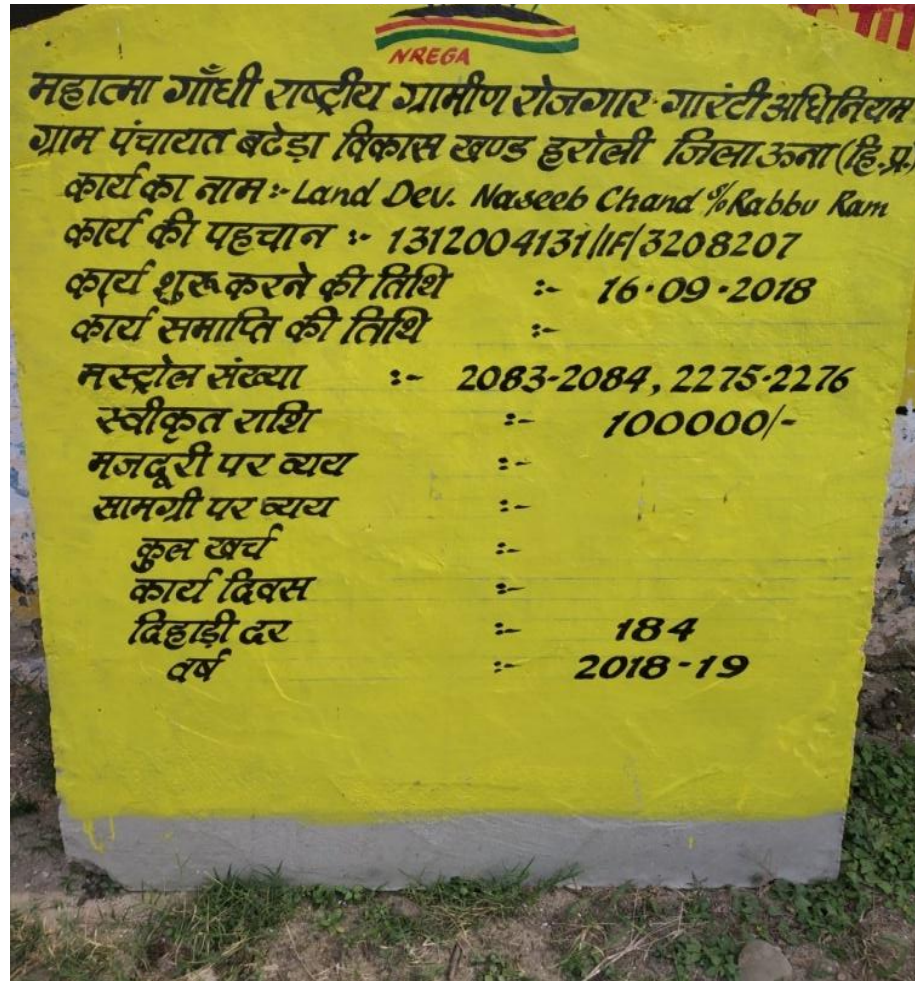 NREGA
महात्मा गाँधी राष्ट्रीय ग्रामीण रोजगार गारंटी अधिनियम
ग्राम पंचायत बटेड़ा विकास खण्ड हरोली जिला ऊना (हि.प्र.)
कार्य का नाम :- Land Dev. Naseeb Chand %Rabbu Ram
कार्य की पहचान :- 1312004131/IF/3208207
कार्य शुरू करने की तिथि :- 16.09.2018
कार्य समाप्ति की तिथि :-
मस्ट्रोल संख्या :- 2083-2084, 2275-2276
स्वीकृत राशि :- 100000/-
मजदूरी पर व्यय :-
सामग्री पर व्यय :-
कुल खर्च :-
कार्य दिवस :-
दिहाड़ी दर :- 184
वर्ष :- 2018-19